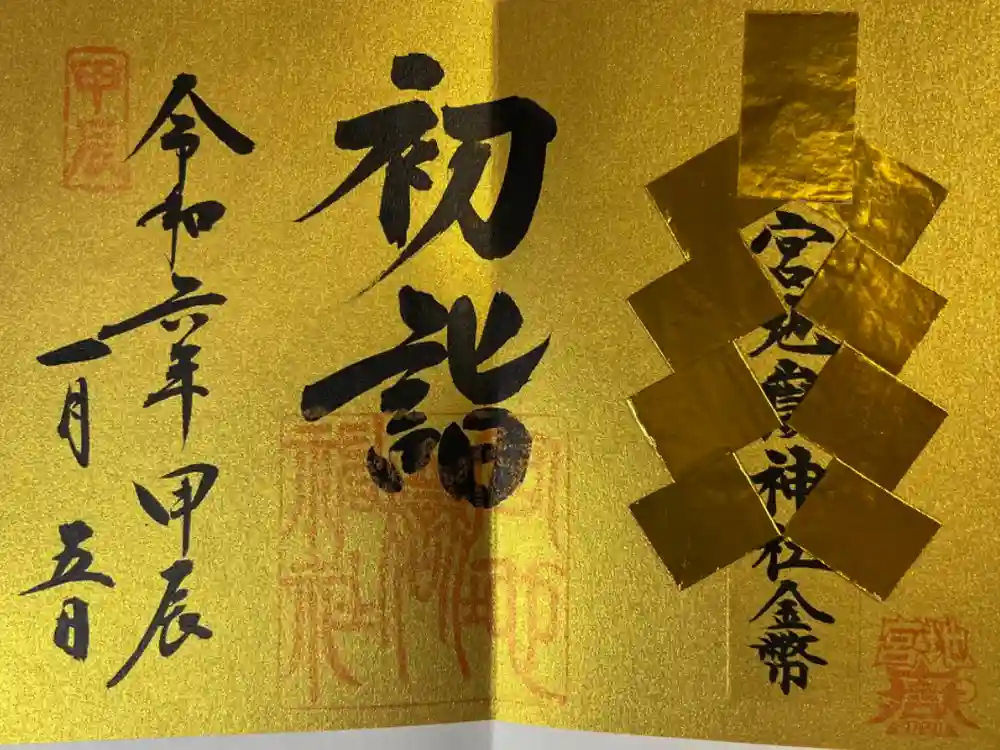 宮地嶽神社金幣
初詣
令和六年甲辰
一月五日
甲辰
宮地嶽神社
宮地嶽